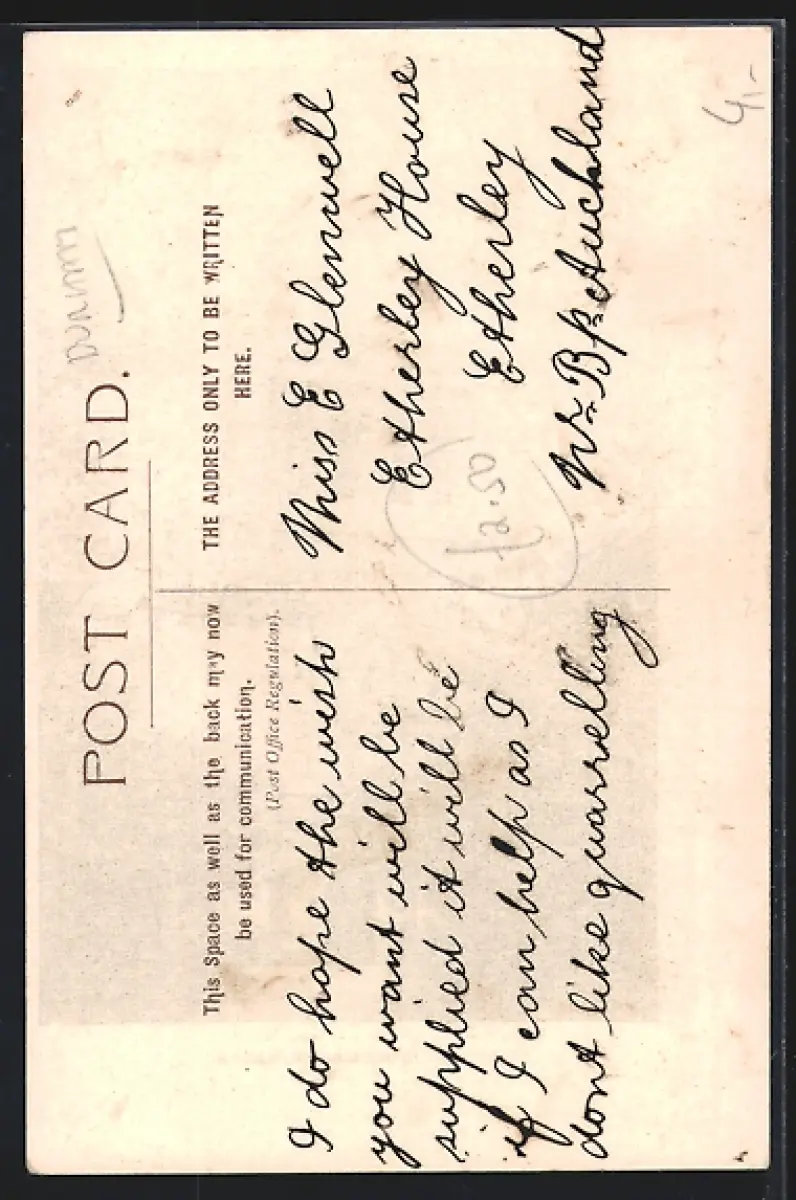 DURHAM
POST CARD.
This Space as well as the back may now
be used for communication.
(Post Office Regulation).
I do hope the wish
you want will be
supplied it will be
if I can help as I
dont like quarrelling
THE ADDRESS ONLY TO BE WRITTEN
HERE.
Miss E Glenwell
Etherley House
Etherley
Nr Bp Auckland
£2.50
4,-